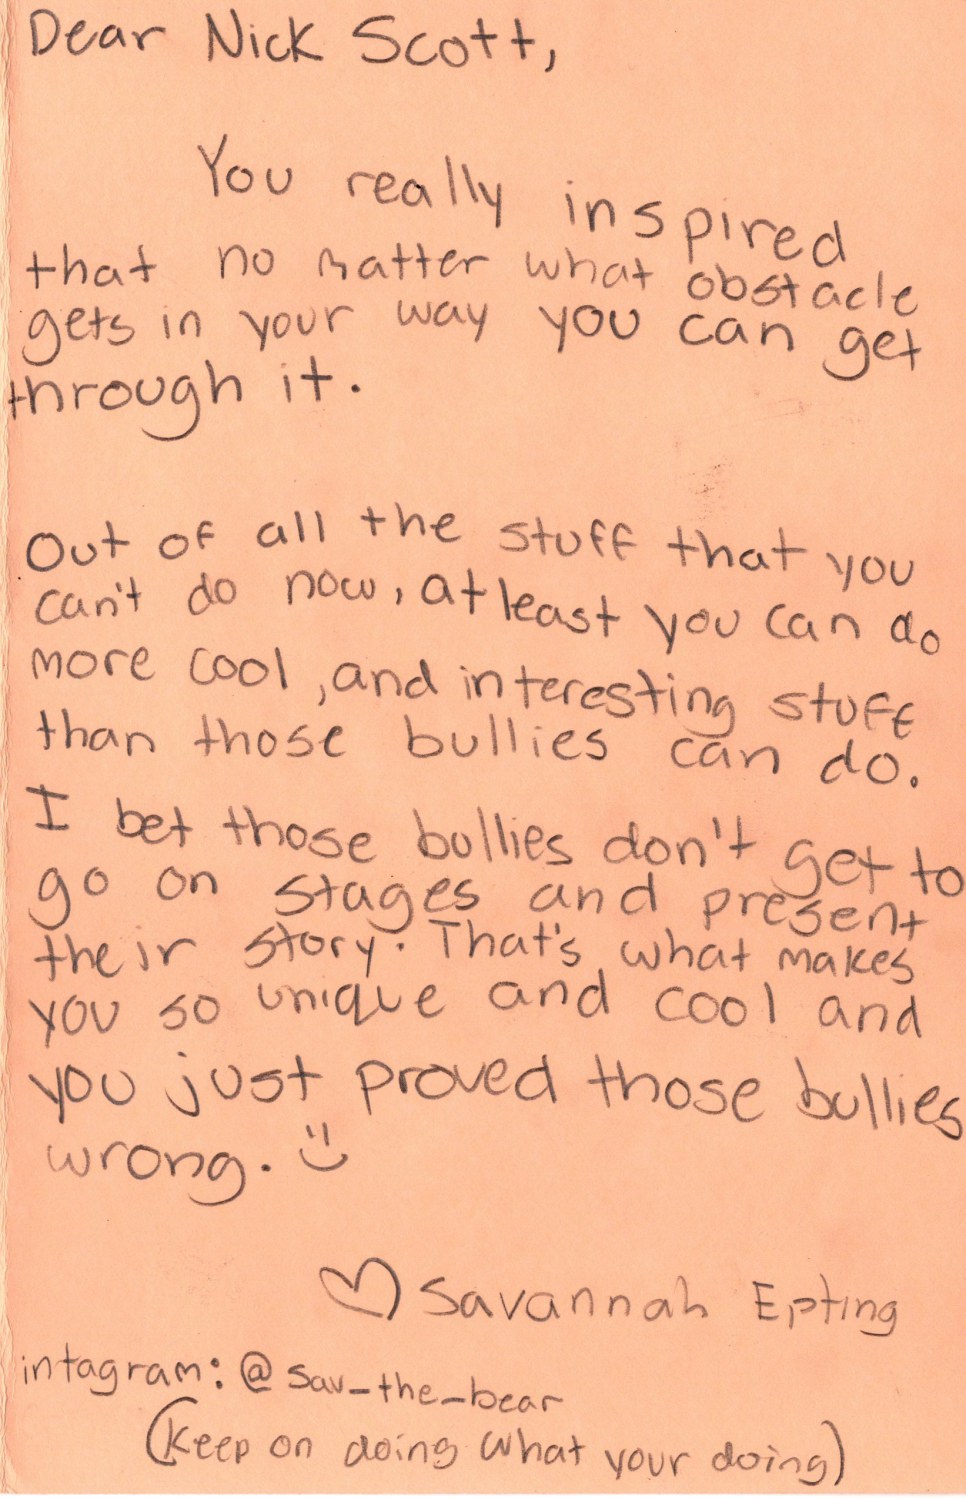 Dear Nick Scott,
You really inspired
that no matter what obstacle
gets in your way you can get
through it.
Out of all the stuff that you
can't do now, at least you can do
more cool, and interesting stuff
than those bullies can do.
I bet those bullies don't get to
go on stages and present
their story. That's what makes
you so unique and cool and
you just proved those bullies
wrong. :)
♡ Savannah Epting
intagram: @sav_the_bear
(Keep on doing what your doing)